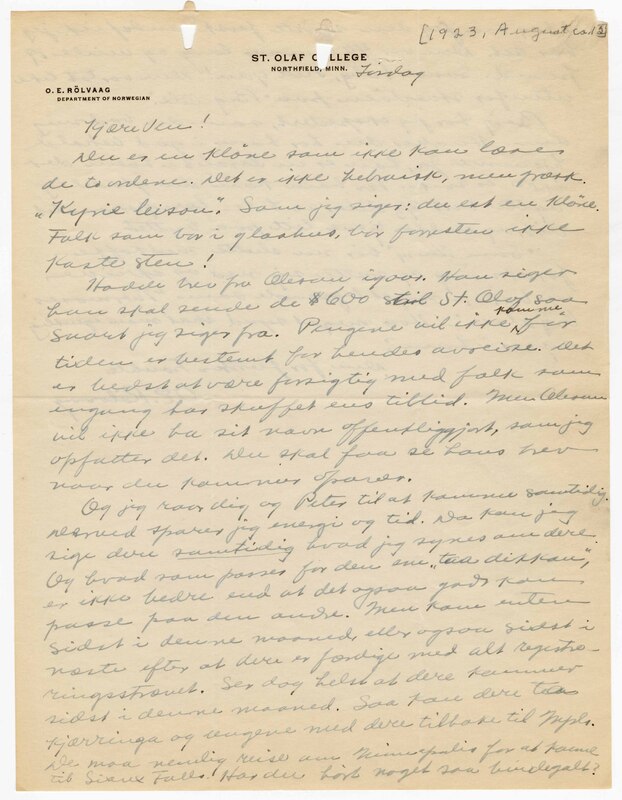 [1923, August ca. 13]
ST. OLAF COLLEGE
NORTHFIELD, MINN.
Tirsdag
O. E. RÖLVAAG
DEPARTMENT OF NORWEGIAN
Kjære Ven!
Du er en kløne som ikke kan læse
de to ordene. Det er ikke hebraisk, men græsk.
"Kyrie leison". Som jeg siger: du est en kløne.
Folk som bor i glashus, bør forresten ikke
kaste sten!
Hadde brev fra Oleson igaar. Han siger
han skal sende de $600 til St. Olaf saa
snart jeg siger fra. Pengene vil ikke komme før
tiden er bestemt for hendes avreise. Det
er bedst at være forsigtig med folk som
engang har skuffet ens tillid. Men Oleson
vil ikke ha sit navn offentliggjort, som jeg
opfatter det. Du skal faa se hans brev
naar du kommer
Og jeg raar dig og Peter til at komme samtidig.
Derved sparer jeg energi og tid. Da kan jeg
sige dere samtidig hvad jeg synes om dere.
Og hvad som passer for den ene,
er ikke bedre end at det ogsaa godt kan
passe paa den andre. Men kom enten
sidst i denne maaned eller ogsaa sidst i
næste efter at dere er færdige med alt registre-
ringsstrævet. Ser dog helst at dere kommer
sidst i denne maaned. Saa kan dere taa
kjærringa og ungene med dere tilbake til Mpls.
De maa nemlig reise om Minneapolis for at komme
til Sioux Falls! Har du hørt noget saa bindegalt?